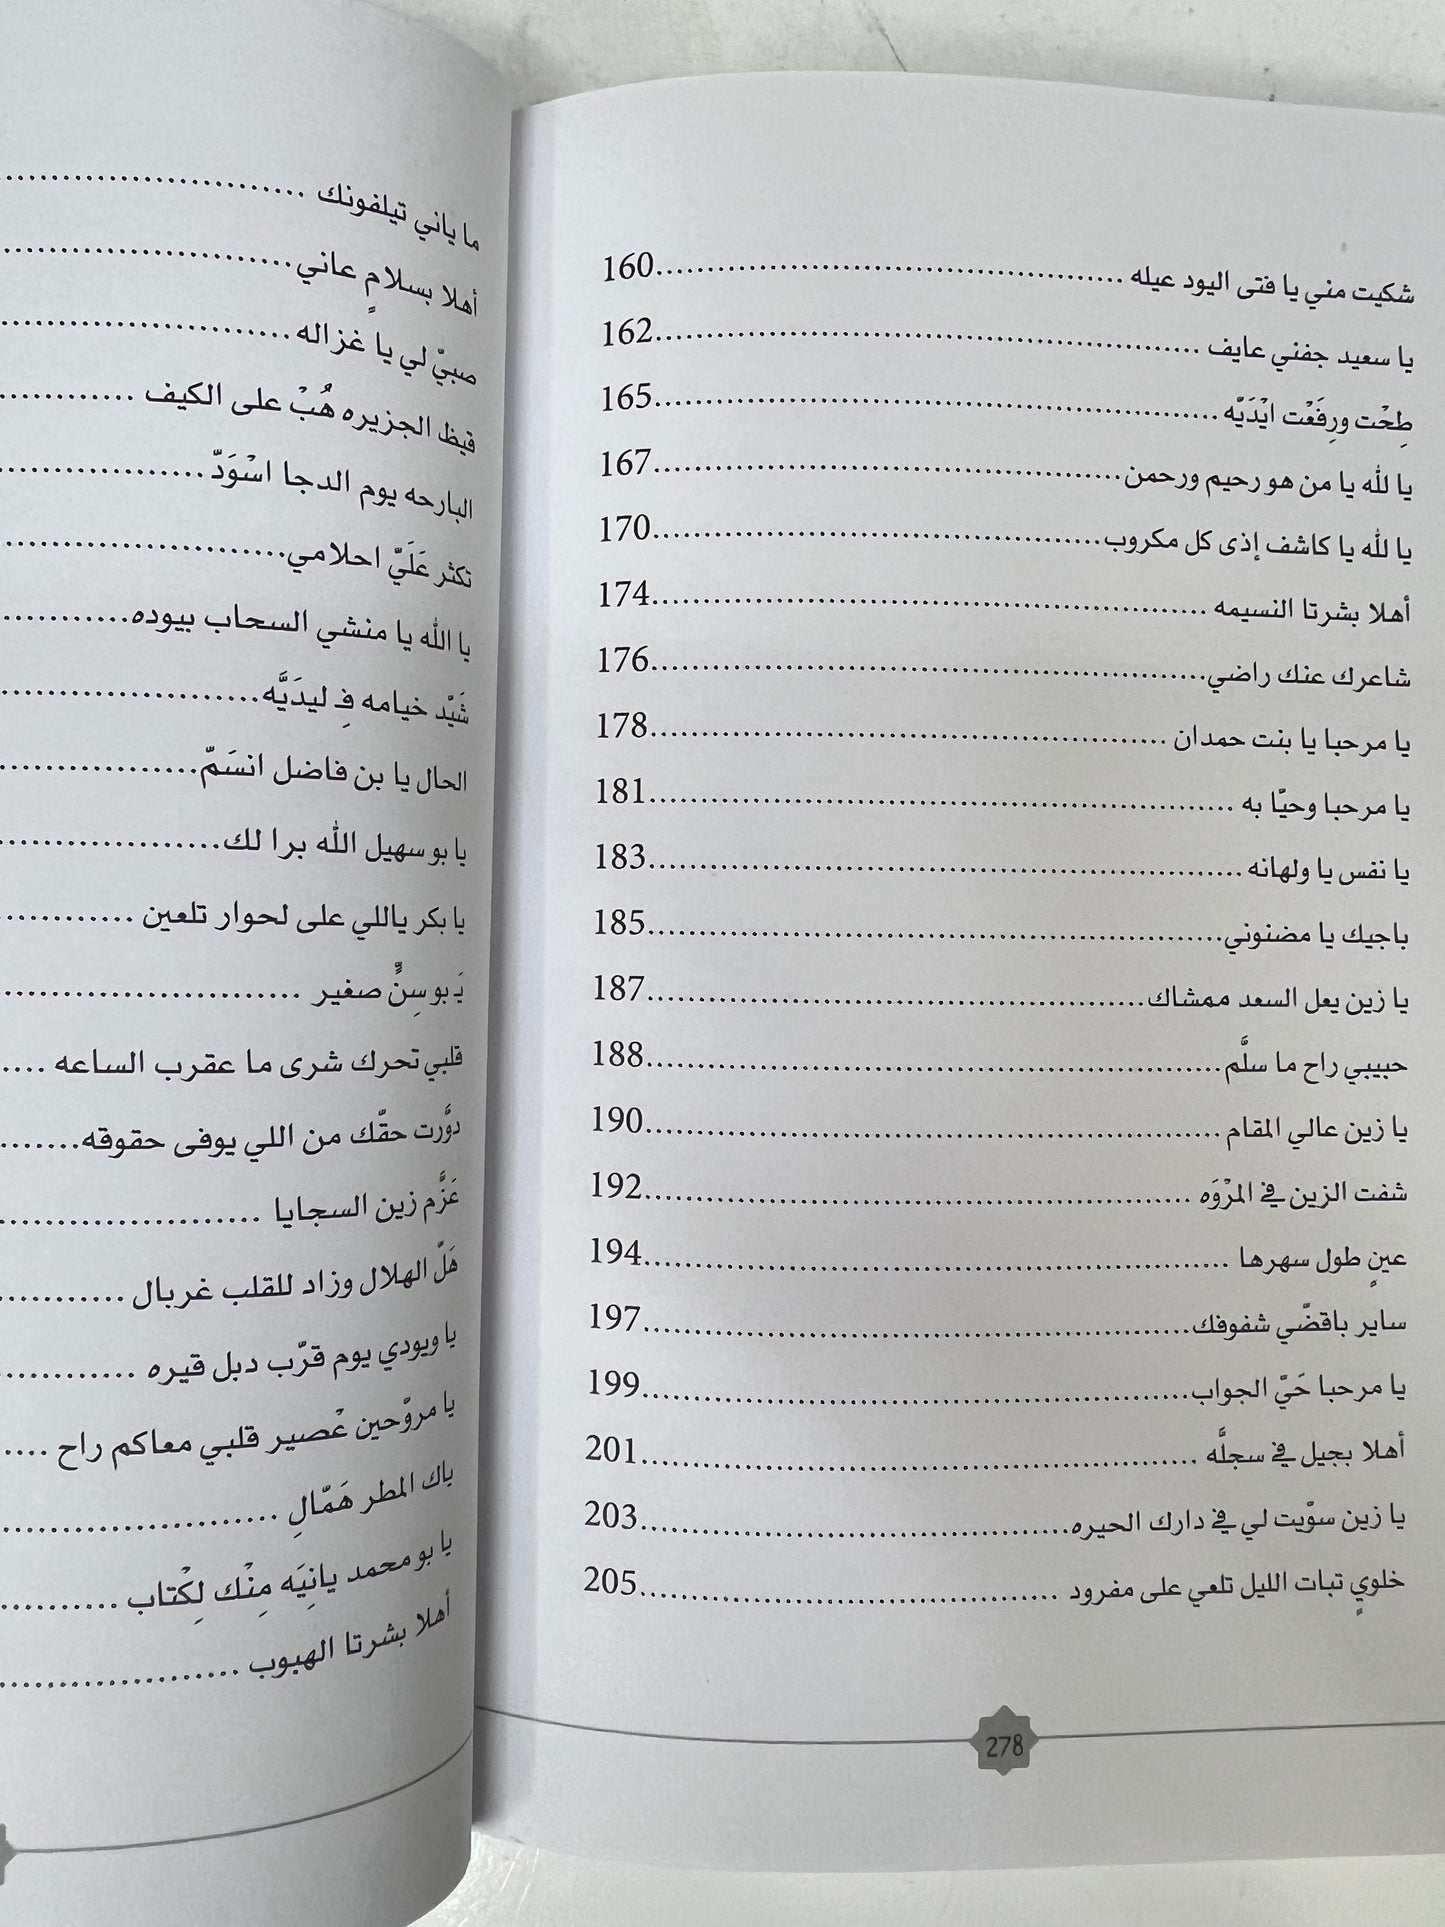 شكيت مني يا فتى اليود عيله ........................................ 160
يا سعيد جفني عايف ........................................ 162
طِحْت ورِفَعْت ايْدَيّه ........................................ 165
يا لله يا من هو رحيم ورحمن ........................................ 167
يا لله يا كاشف إذى كل مكروب ........................................ 170
أهلا بشرتا النسيمه ........................................ 174
شاعرك عنك راضي ........................................ 176
يا مرحبا يا بنت حمدان ........................................ 178
يا مرحبا وحيّا به ........................................ 181
يا نفس يا ولهانه ........................................ 183
باجيك يا مضنوني ........................................ 185
يا زين يعل السعد ممشاك ........................................ 187
حبيبي راح ما سلَّم ........................................ 188
يا زين عالي المقام ........................................ 190
شفت الزين في المرْوَه ........................................ 192
عينٍ طول سهرها ........................................ 194
ساير باقضّي شفوفك ........................................ 197
يا مرحبا حَيّ الجواب ........................................ 199
أهلا بجيل في سجلَّه ........................................ 201
يا زين سوّيت لي في دارك الحيره ........................................ 203
خلويٍ تبات الليل تلعي على مفرود ........................................ 205
278
ما ياني تيلفونك ..............................
أهلا بسلامٍ عاني ..............................
صبيْ لي يا غزاله ..............................
قيظ الجزيره هُبْ على الكيف ..............................
البارحه يوم الدجا اسْوَدّ ..............................
تكثر عَلَيّ احلامي ..............................
يا الله يا منشي السحاب بيوده ..............................
شَيَّد خيامه فِ ليدَيَّه ..............................
الحال يا بن فاضل انسَمّ ..............................
يا بو سهيل الله برا لك ..............................
يا بكر ياللي على لحوار تلعين ..............................
يَ بو سِنٍّ صغير ..............................
قلبي تحرك شرى ما عقرب الساعه ....
دوَّرت حقّك من اللي يوفى حقوقه .......
عَزَّم زين السجايا ..............................
هَلّ الهلال وزاد للقلب غربال ............
يا ويودي يوم قرّب دبل قيره ............
يا مروّحين عْصير قلبي معاكم راح ....
ياك المطر هَمّالِ ..............................
يا بو محمد يانِيَه مِنْك لِكْتاب ............
أهلا بشرتا الهبوب ..............................